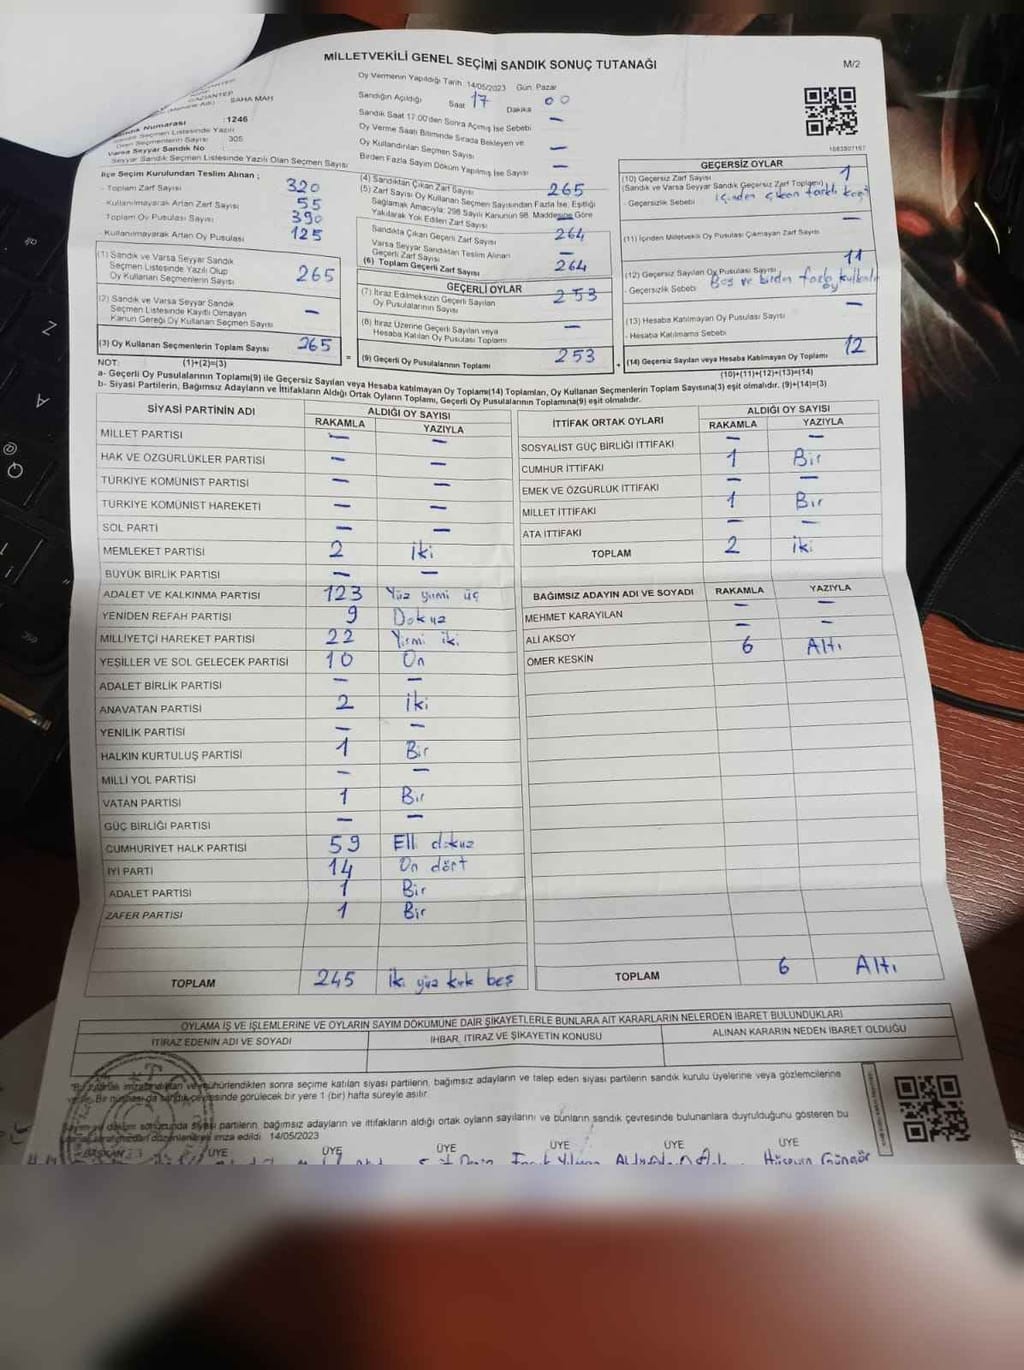 MİLLETVEKİLİ GENEL SEÇİMİ SANDIK SONUÇ TUTANAĞI
M/2
GAZİANTEP
ŞAHA MAH
Sandık Numarası :1246
Seçmen Listesinde Yazılı
Olan Seçmenlerin Sayısı 305
Varsa Seyyar Sandık No
Seyyar Sandık Seçmen Listesinde Yazılı Olan Seçmen Sayısı
Oy Vermenin Yapıldığı Tarih 14/05/2023 Gün Pazar
Sandığın Açıldığı Saat 17 Dakika 00
Sandık Saat 17:00'den Sonra Açımış İse Sebebi —
Oy Verme Saati Bitiminde Sırada Bekleyen ve
Oy Kullandırılan Seçmen Sayısı —
Birden Fazla Sayım Döküm Yapılmış İse Sayısı —
1583507157
İlçe Seçim Kurulundan Teslim Alınan ;
- Toplam Zarf Sayısı 320
- Kullanılmayarak Artan Zarf Sayısı 55
- Toplam Oy Pusulası Sayısı 390
- Kullanılmayarak Artan Oy Pusulası 125
(1) Sandık ve Varsa Seyyar Sandık
Seçmen Listesinde Yazılı Olup
Oy Kullanan Seçmenlerin Sayısı 265
(2) Sandık ve Varsa Seyyar Sandık
Seçmen Listesinde Kayıtlı Olmayan
Kanun Gereği Oy Kullanan Seçmen Sayısı —
(3) Oy Kullanan Seçmenlerin Toplam Sayısı 265
(4) Sandıktan Çıkan Zarf Sayısı 265
(5) Zarf Sayısı Oy Kullanan Seçmen Sayısından Fazla İse, Eşitliği
Sağlamak Amacıyla; 298 Sayılı Kanunun 98. Maddesine Göre
Yakılarak Yok Edilen Zarf Sayısı —
Sandıkta Çıkan Geçerli Zarf Sayısı 264
Varsa Seyyar Sandıktan Teslim Alınan
Geçerli Zarf Sayısı —
(6) Toplam Geçerli Zarf Sayısı 264
GEÇERLİ OYLAR
(7) İtiraz Edilmeksizin Geçerli Sayılan
Oy Pusulalarının Sayısı 253
(8) İtiraz Üzerine Geçerli Sayılan veya
Hesaba Katılan Oy Pusulası Toplamı —
= (9) Geçerli Oy Pusulalarının Toplamı 253
GEÇERSİZ OYLAR
(10) Geçersiz Zarf Sayısı 1
(Sandık ve Varsa Seyyar Sandık Geçersiz Zarf Toplamı)
- Geçersizlik Sebebi içinden çıkan farklı
(11) İçinden Milletvekili Oy Pusulası Çıkmayan Zarf Sayısı —
(12) Geçersiz Sayılan Oy Pusulası Sayısı 11
- Geçersizlik Sebebi Boş ve birden fazla oy
(13) Hesaba Katılmayan Oy Pusulası Sayısı —
- Hesaba Katılmama Sebebi
+ (14) Geçersiz Sayılan veya Hesaba Katılmayan Oy Toplamı 12
NOT: (1)+(2)=(3)
(10)+(11)+(12)+(13)=(14)
a- Geçerli Oy Pusulalarının Toplamı(9) ile Geçersiz Sayılan veya Hesaba katılmayan Oy Toplamı(14) Toplamları, Oy Kullanan Seçmenlerin Toplam Sayısına(3) eşit olmalıdır. (9)+(14)=(3)
b- Siyasi Partilerin, Bağımsız Adayların ve İttifakların Aldığı Ortak Oyların Toplamı, Geçerli Oy Pusulalarının Toplamına(9) eşit olmalıdır.
SİYASİ PARTİNİN ADI ALDIĞI OY SAYISI
RAKAMLA YAZIYLA
MİLLET PARTİSİ — —
HAK VE ÖZGÜRLÜKLER PARTİSİ — —
TÜRKİYE KOMÜNİST PARTİSİ — —
TÜRKİYE KOMÜNİST HAREKETİ — —
SOL PARTİ — —
MEMLEKET PARTİSİ 2 iki
BÜYÜK BİRLİK PARTİSİ — —
ADALET VE KALKINMA PARTİSİ 123 Yüz yirmi üç
YENİDEN REFAH PARTİSİ 9 Dokuz
MİLLİYETÇİ HAREKET PARTİSİ 22 Yirmi iki
YEŞİLLER VE SOL GELECEK PARTİSİ 10 On
ADALET BİRLİK PARTİSİ — —
ANAVATAN PARTİSİ 2 iki
YENİLİK PARTİSİ — —
HALKIN KURTULUŞ PARTİSİ 1 Bir
MİLLİ YOL PARTİSİ — —
VATAN PARTİSİ 1 Bir
GÜÇ BİRLİĞİ PARTİSİ — —
CUMHURİYET HALK PARTİSİ 59 Elli dokuz
İYİ PARTİ 14 On dört
ADALET PARTİSİ 1 Bir
ZAFER PARTİSİ 1 Bir
TOPLAM 245 iki yüz kırk beş
İTTİFAK ORTAK OYLARI ALDIĞI OY SAYISI
RAKAMLA YAZIYLA
SOSYALİST GÜÇ BİRLİĞİ İTTİFAKI — —
CUMHUR İTTİFAKI 1 Bir
EMEK VE ÖZGÜRLÜK İTTİFAKI — —
MİLLET İTTİFAKI 1 Bir
ATA İTTİFAKI — —
TOPLAM 2 iki
BAĞIMSIZ ADAYIN ADI VE SOYADI RAKAMLA YAZIYLA
MEHMET KARAYILAN — —
ALİ AKSOY — —
ÖMER KESKİN 6 Altı
TOPLAM 6 Altı
OYLAMA İŞ VE İŞLEMLERİNE VE OYLARIN SAYIM DÖKÜMÜNE DAİR ŞİKAYETLERLE BUNLARA AİT KARARLARIN NELERDEN İBARET BULUNDUKLARI
İTİRAZ EDENİN ADI VE SOYADI İHBAR, İTİRAZ VE ŞİKAYETİN KONUSU ALINAN KARARIN NEDEN İBARET OLDUĞU
mühürlendikten sonra seçime katılan siyasi partilerin, bağımsız adayların ve talep eden siyasi partilerin sandık kurulu üyelerine veya gözlemcilerine
Bir nüshası da sandık çevresinde görülecek bir yere 1 (bir) hafta süreyle asılır.
sonucunda siyasi partilerin, bağımsız adayların ve ittifakların aldığı ortak oyların sayılarını ve bunların sandık çevresinde bulunanlara duyrulduğunu gösteren bu
düzenlenerek imza edildi. 14/05/2023
BAŞKAN ÜYE ÜYE ÜYE ÜYE ÜYE ÜYE
Hüseyin Güngör